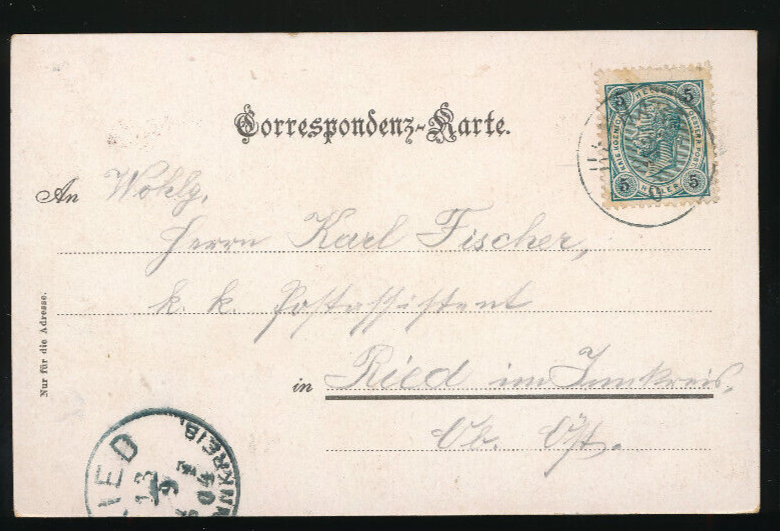 Correspondenz-Karte.
5 HELLER 5
5 HELLER 5
An Wohlg.
Herrn Karl Fischer,
k. k. Postassistent
in Ried im Innkreis,
Ob. Öst.
Nur für die Adresse.
RIED
13
9